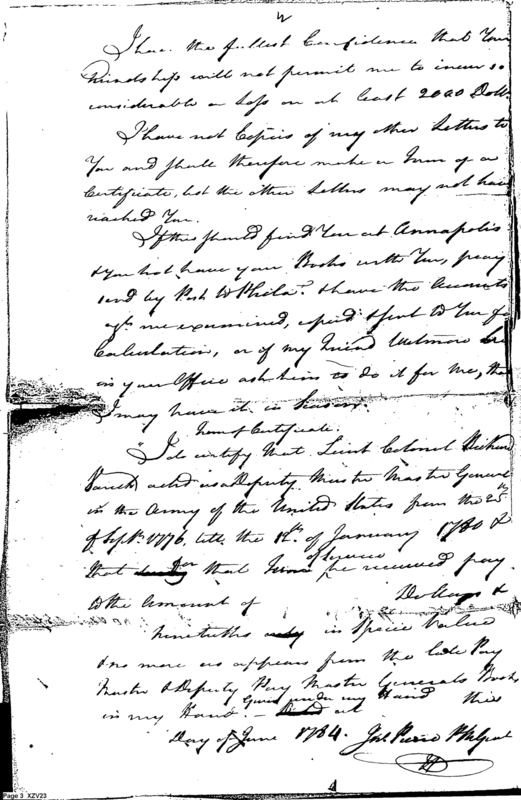 2
I have the fullest Confidence that Your
Friendship will not permit me to incur so
considerable a Loss on at least 2000 Doll.s
I have not Copies of my other Letters to
You and shall therefore make a Form of a
Certificate, lest the other Letters may not have
reached You.
If this should find You at Annapolis
& you not have your Books with You, pray
send by Post to Phila.a & have the Accounts
ag.t me examined, copied & sent to You for
Calculation, or if my Friend Wetmore be
in your Office ask him to do it for me, that
I may have it in Season.
Form of Certificate.
"I do certify that Lieut Colonel Richard
Varick acted as a Deputy Muster Master General
in the Army of the United States from the 25th
of Sept.r 1776, till the 12th of January 1780 &
that for that Time of Service he received pay
to the Amount of Dollars &
ninetieths in Specie Value
& no more as appears from the late Pay
Master & Deputy Pay Master Generals Books
in my Hand. - Given under my Hand this
at
Day of June 1784. Jn.o Pierce P M Genl
Page 3 XZV23